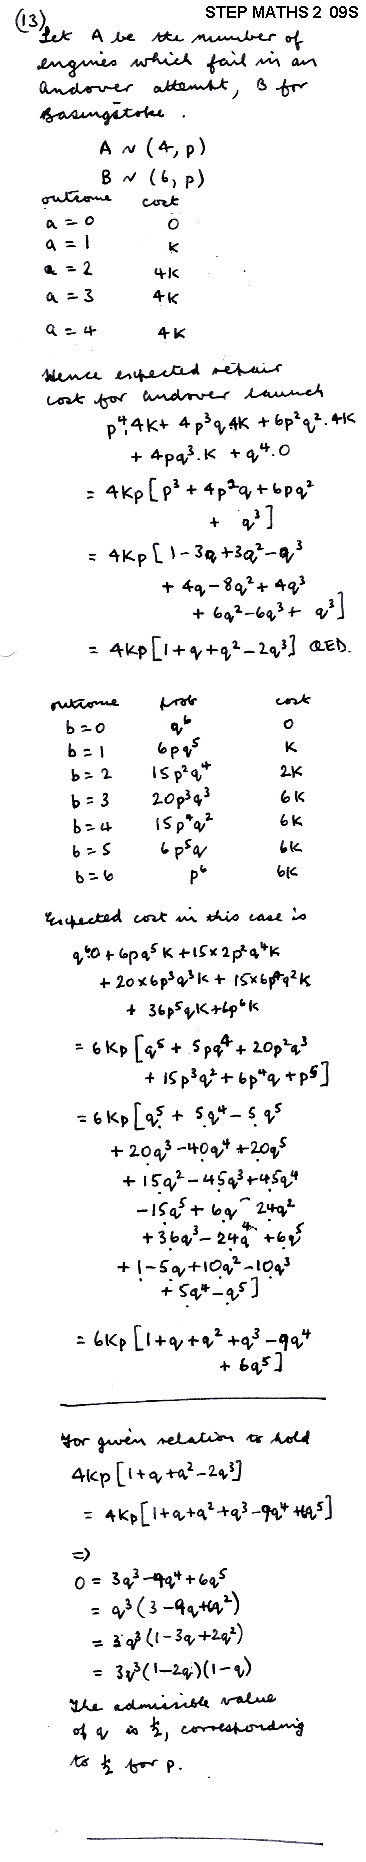 STEP MATHS 2 09S
(13) Let A be the number of
engines which fail in an
Andover attempt, B for
Basingstoke.
A ~ (4, p)
B ~ (6, p)
outcome cost
a = 0 0
a = 1 K
a = 2 4K
a = 3 4K
a = 4 4K
Hence expected repair
cost for Andover launch
p⁴.4K + 4p³q 4K + 6p²q².4K
+ 4pq³.K + q⁴.0
= 4Kp [p³ + 4p²q + 6pq²
+ q³]
= 4Kp [1-3q+3q²-q³
+ 4q-8q²+4q³
+ 6q²-6q³+ q³]
= 4Kp [1+q+q²-2q³] QED.
outcome prob cost
b=0 q⁶ 0
b=1 6pq⁵ K
b=2 15p²q⁴ 2K
b=3 20p³q³ 6K
b=4 15p⁴q² 6K
b=5 6p⁵q 6K
b=6 p⁶ 6K
Expected cost in this case is
q⁶0 + 6pq⁵K + 15×2p²q⁴K
+ 20×6p³q³K + 15×6p⁴q²K
+ 36p⁵qK+6p⁶K
= 6Kp [q⁵ + 5pq⁴ + 20p²q³
+ 15p³q² + 6p⁴q + p⁵]
= 6Kp [q⁵ + 5q⁴ - 5q⁵
+ 20q³ - 40q⁴ + 20q⁵
+ 15q² - 45q³ + 45q⁴
- 15q⁵ + 6q - 24q²
+ 36q³ - 24q⁴ + 6q⁵
+ 1 - 5q + 10q² - 10q³
+ 5q⁴ - q⁵]
= 6Kp [1+q+q²+q³-9q⁴
+ 6q⁵]
For given relation to hold
4Kp [1+q+q²-2q³]
= 4Kp [1+q+q²+q³-9q⁴+6q⁵]
⇒
0 = 3q³-9q⁴+6q⁵
= q³(3-9q+6q²)
= 3q³(1-3q+2q²)
= 3q³(1-2q)(1-q)
The admissible value
of q is ½, corresponding
to ½ for p.